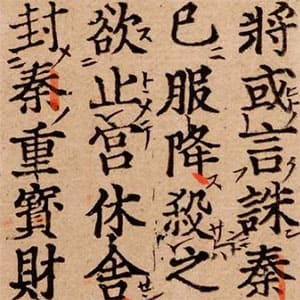 將或言誅秦
已服降殺之
欲止宮休舍
封秦重寶財